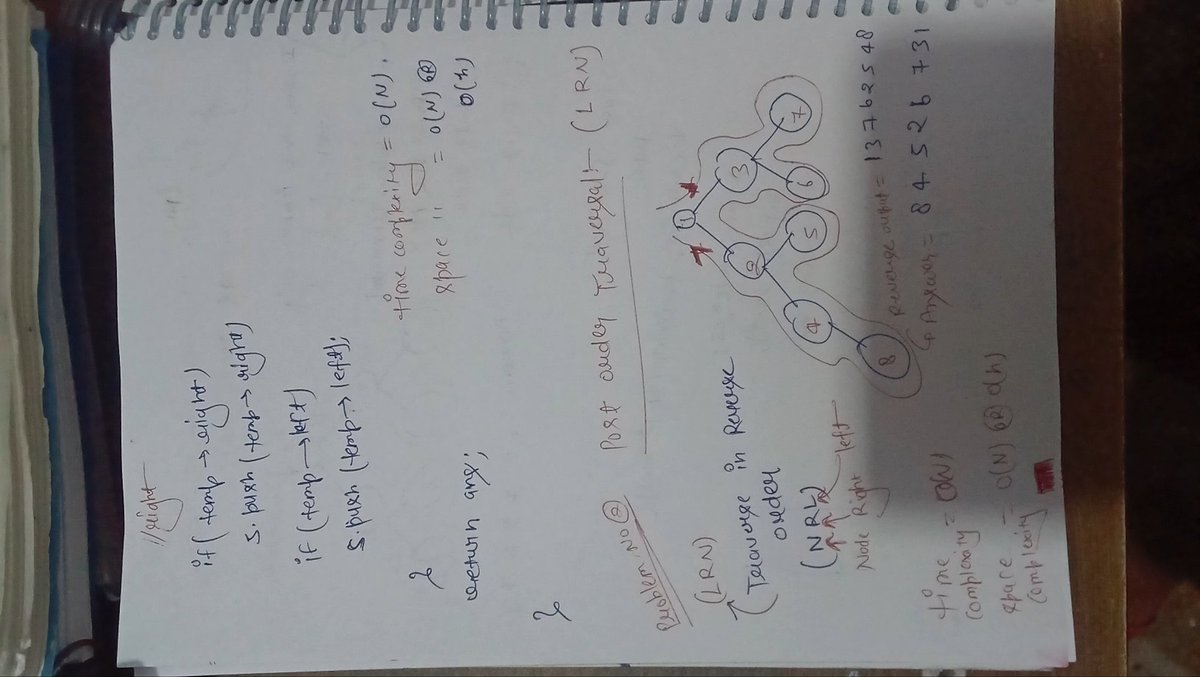 //right
if (temp → right)
s.push (temp → right)
if (temp → left)
s.push (temp → left);
}
return ans;
time complexity = O(N).
space " = O(N) OR
O(h)
}
Problem No 2
Post order Traversal:- (LRN)
(LRN)
Traverse in Reverse
order
(NRL)
Node Right left
1
2 3
4 5 6 7
8
Reverse output = 1 3 7 6 2 5 4 8
Answer = 8 4 5 2 6 7 3 1
time
complexity = O(N)
space
complexity = O(N) OR O(h)